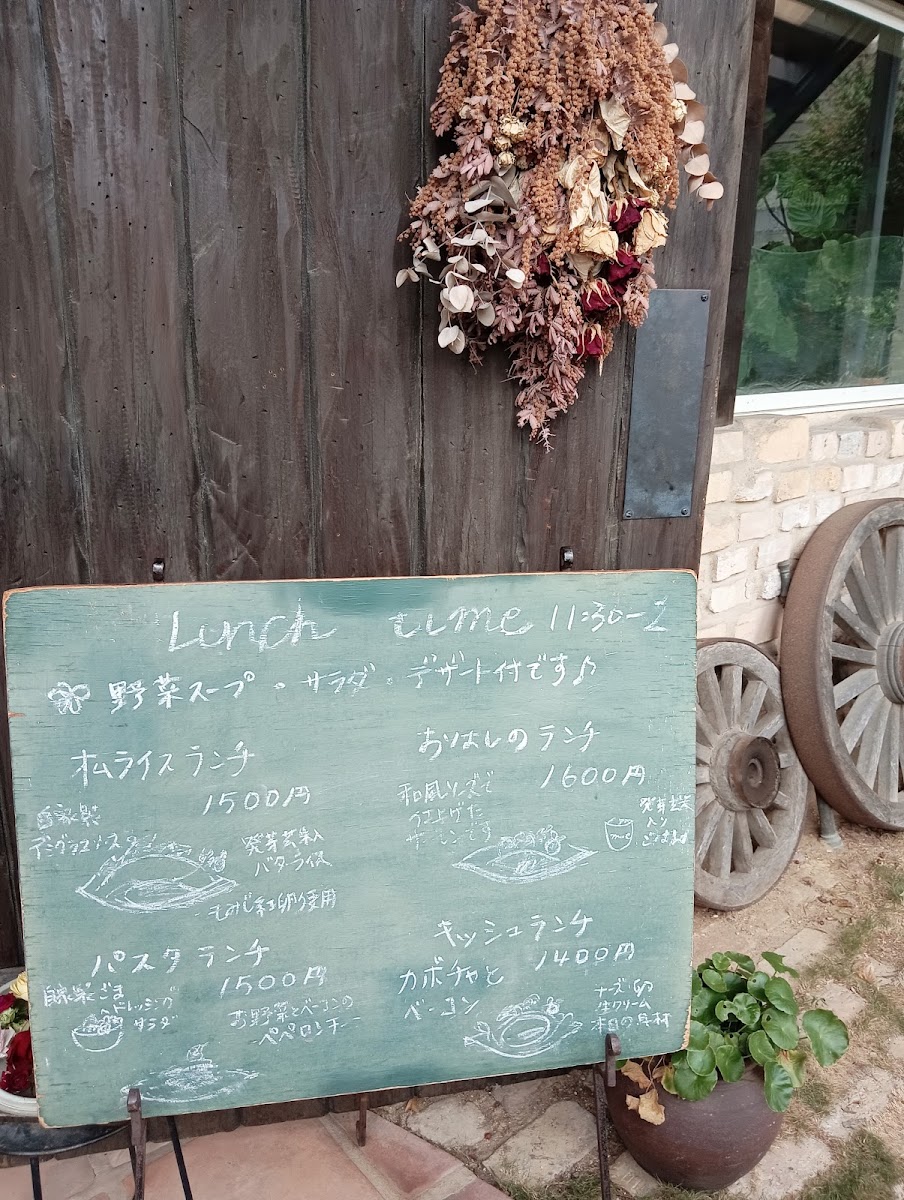 Lunch time 11:30-2
野菜スープ・サラダ・デザート付です♪
オムライスランチ
1500円
自家製
デミグラスソース
発芽玄米入
バターライス
もみじ紅卵使用
おりはしのランチ
1600円
和風ソースで
仕上げた
サーモンです
発芽玄米
入り
ごはん
パスタランチ
1500円
自家製ごま
ドレッシング
サラダ
お野菜とベーコンの
ペペロンチーノ
キッシュランチ
1400円
カボチャと
ベーコン
チーズ・卵
生クリーム
本日の具材